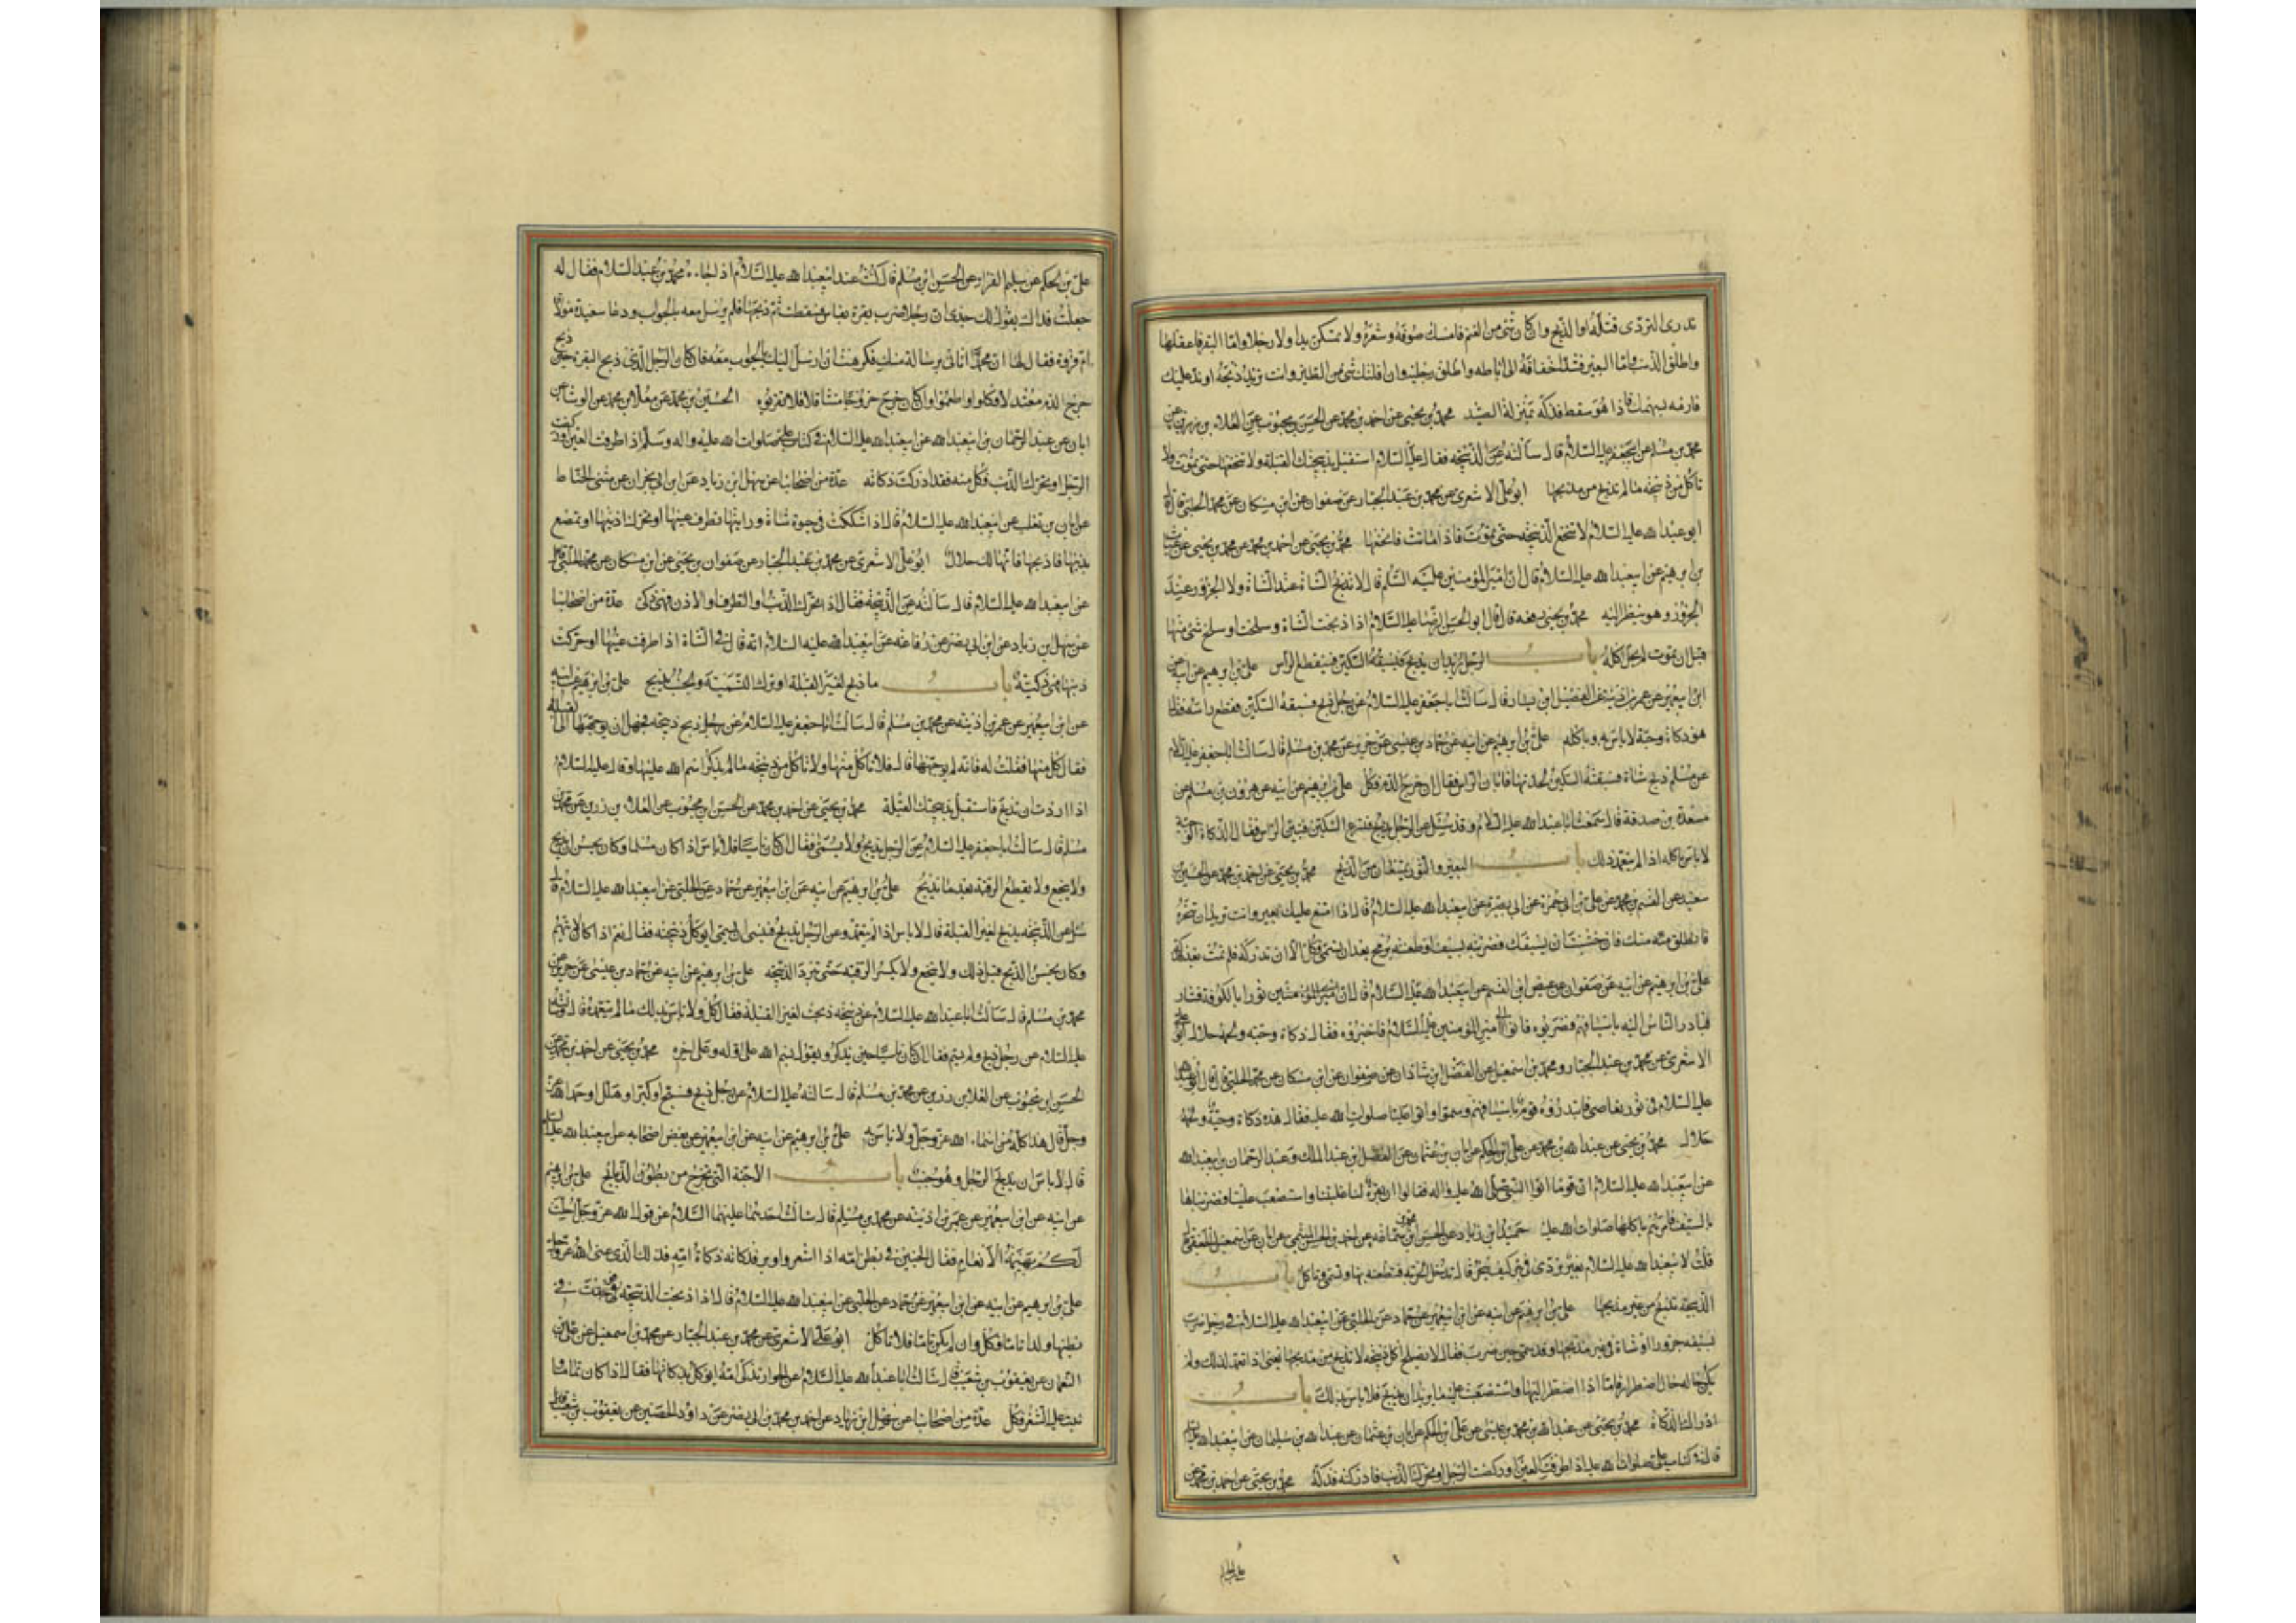 تدرى التردى قتله او الذبح وان كان شئ من الغنم فامسك صوفه وشعره ولا تمسكن يدا ولا رجلا واما البقر فاعقلها
واطلق الذنب واما البعير فشد اخفافه الى اباطه واطلق رجليه وان افلتك شئ من الطير وانت تريد ذبحه او ند عليك
فارمه بسهمك فاذا هو سقط فذكه بمنزلة الصيد محمد بن يحيى عن احمد بن محمد عن الحسن بن محبوب عن العلاء بن رزين عن
محمد بن مسلم عن ابيجعفر عليه السلام قال سالته عن الذبيحة فقال عليه السلام استقبل بذبيحتك القبلة ولا تنخعها حتى تموت ولا
تاكل من ذبيحه مالم تذبح من مذبحها ابو على الاشعرى عن محمد بن عبد الجبار عن صفوان عن ابن مسكان عن محمد الحلبى قال قال
ابو عبد الله عليه السلام لا تنخع الذبيحه حتى تموت فاذا ماتت فانخعها محمد بن يحيى عن احمد بن محمد عن محمد بن يحيى عن غياث
بن ابرهيم عن ابيعبد الله عليه السلام قال ان امير المؤمنين عليه السلم قال لا تذبح الشاة عند الشاة ولا الجزور عند
الجزور وهو ينظر اليه محمد بن يحيى رفعه قال قال ابو الحسن الرضا عليه السلام اذا ذبحت الشاة وسلخت او سلخ شئ منها
قبل ان تموت لم يحل اكله باب الرجل يريد ان يذبح فيسبقه السكين فيقطع الراس على بن ابرهيم عن ابيه عن
ابن ابيعمير عن عمر بن اذينة عن الفضيل ابن يسار قال سالت ابا جعفر عليه السلام عن رجل ذبح فسبقه السكين فقطع راسه فقال
هو ذكاة وحية لا باس به وباكله على بن ابرهيم عن ابيه عن حماد بن عيسى عن حريز عن محمد بن مسلم قال سالت ابا جعفر عليه السلام
عن مسلم ذبح شاة فسبقته السكين بحدتها فابان الراس فقال ان خرج الدم فكل على بن ابرهيم عن ابيه عن هرون بن مسلم عن
مسعدة بن صدقة قال سمعت ابا عبد الله عليه السلام وقد سئل عن الرجل يذبح فتسرع السكين فتبين الراس فقال الذكاة الوحية
لا باس باكله اذا لم يتعمد ذلك باب البعير والثور يمتنعان من الذبح محمد بن يحيى عن احمد بن محمد عن الحسين بن
سعيد عن القسم بن محمد عن على بن ابى حمزة عن ابى بصير عن ابيعبد الله عليه السلام قال اذا امتنع عليك بعير وانت تريد ان تنحره
فانطلق منك فان خشيت ان يسبقك فضربته بسيف او طعنته برمح بعد ان تسمى فكل الا ان تدركه فلم تمت بعد فذكه
على بن ابرهيم عن ابيه عن صفوان عن عيص ابن القسم عن ابيعبد الله عليه السلام قال ان ثورا بالكوفة فثار
فبادر الناس اليه باسيافهم فضربوه فاتوا امير المؤمنين عليه السلام فاخبروه فقال ذكاة وحيه ولحمه حلال ابو على
الاشعرى عن محمد بن عبد الجبار ومحمد بن اسمعيل عن الفضل ابن شاذان عن صفوان عن ابن مسكان عن محمد الحلبى قال قال ابو عبد الله
عليه السلام فى ثور تعاصى فابتدروه قوم باسيافهم وسموا واتوا عليا صلوات الله عليه فقال هذه ذكاة وحية ولحمه
حلال محمد بن يحيى عن عبد الله بن محمد عن على ابن الحكم عن ابان بن عثمان عن الفضل ابن عبد الملك وعبد الرحمان بن ابيعبد الله
عن ابيعبد الله عليه السلام ان قوما اتوا النبى صلى الله عليه واله فقالوا ان بقرة لنا غلبتنا واستصعبت علينا فضربناها
بالسيف فامرهم باكلها صلوات الله عليه حميد ابن زياد عن الحسن بن محمد بن سماعه عن احمد بن الحسن الميثمى عن ابان عن اسمعيل الجعفى قال
قلت لابيعبد الله عليه السلام بعير تردى فى بئر كيف ينحر قال تدخل الحربه فتطعنه بها وتسمى وتاكل باب
الذبيحة تذبح من غير مذبحها على بن ابرهيم عن ابيه عن ابن ابيعمير عن حماد عن الحلبى عن ابيعبد الله عليه السلام فى رجل ضرب
بسيفه جزورا او شاة فى غير مذبحها وقد سمى حين ضرب فقال لا يصلح اكل ذبيحه لا تذبح من مذبحها يعنى اذا تعمد لذلك ولم
يكن حاله حال اضطرار فاما اذا اضطر اليها واستصعبت عليه ما يريد ان يذبح فلا باس بذلك باب
ادراك الذكاة محمد بن يحيى عن عبد الله بن محمد بن عيسى عن على ابن الحكم عن ابان بن عثمان عن عبد الله بن سليمان عن ابيعبد الله عليه السلام
قال فى كتاب على صلوات الله عليه اذا طرفت العين او ركضت الرجل او تحرك الذنب فادركته فذكه محمد بن يحيى عن احمد بن محمد عن
على بن الحكم
على بن الحكم عن سليم الفراء عن الحسين ابن مسلم قال كنت عند ابيعبد الله عليه السلام اذ جاءه محمد بن عبد السلام فقال له
جعلت فداك يقول لك جدى ان رجلا ضرب بقرة بفاس فسقطت ثم ذبحها فلم يرسل معه بالجواب ودعا سعيدة مولاة
ام فروة فقال لها ان محمدا اتانى برسالة منك فكرهت ان ارسل اليك بالجواب معه فان كان الرجل الذى ذبح البقرة حين ذبح
خرج الدم معتدلا فكلوا واطعموا وان كان خرج خروجا متثاقلا فلا تقربوه الحسين بن محمد عن معلى ابن محمد عن الوشاء عن
ابان عن عبد الرحمان بن ابيعبد الله عن ابيعبد الله عليه السلام فى كتاب على صلوات الله عليه واله وسلم اذا طرفت العين او ركضت
الرجل او تحرك الذنب فكل منه فقد ادركت ذكاته عدة من اصحابنا عن سهل ابن زياد عن ابن ابى نجران عن مثنى الحناط
عن ابان بن تغلب عن ابيعبد الله عليه السلام قال اذا شككت فى حيوة شاة ورايتها تطرف عينها او تحرك اذنيها او تمصع
بذنبها فاذبحها فانها لك حلال ابو على الاشعرى عن محمد بن عبد الجبار عن صفوان بن يحيى عن ابن مسكان عن محمد الحلبى
عن ابيعبد الله عليه السلام قال سالته عن الذبيحة فقال اذا تحرك الذنب او الطرف او الاذن فهى ذكى عدة من اصحابنا
عن سهل بن زياد عن ابن ابى نصر عن رفاعه عن ابيعبد الله عليه السلام انه قال فى الشاة اذا طرفت عينها او حركت
ذنبها فهى ذكية باب ما ذبح لغير القبلة او ترك التسمية والجنب يذبح على بن ابرهيم عن ابيه
عن ابن ابيعمير عن عمر بن اذينه عن محمد بن مسلم قال سالت ابا جعفر عليه السلام عن رجل ذبح ذبيحه فجهل ان يوجهها الى القبلة
فقال كل منها فقلت له فانه لم يوجهها قال فلا تاكل منها ولا تاكل من ذبيحه مالم يذكر اسم الله عليها وقال عليه السلام
اذا اردت ان تذبح فاستقبل بذبيحتك القبلة محمد بن يحيى عن احمد بن محمد عن الحسن ابن محبوب عن العلاء بن رزين عن محمد بن
مسلم قال سالت ابا جعفر عليه السلام عن الرجل يذبح ولا يسمى فقال ان كان ناسيا فلا باس اذا كان مسلما وكان يحسن ان يذبح
ولا ينخع ولا يقطع الرقبة بعد ما يذبح على بن ابرهيم عن ابيه عن ابن ابيعمير عن حماد عن الحلبى عن ابيعبد الله عليه السلام قال
سئل عن الذبيحه يذبح لغير القبلة قال لا باس اذا لم يتعمد وعن الرجل يذبح فينسى ان يسمى ايوكل ذبيحته فقال نعم اذا كان لا يتهم
وكان يحسن الذبح قبل ذلك ولا ينخع ولا يكسر الرقبه حتى تبرد الذبيحه على بن ابرهيم عن ابيه عن حماد بن عيسى عن حريز عن
محمد بن مسلم قال سالت ابا عبد الله عليه السلام عن ذبيحه ذبحت لغير القبلة فقال كل ولا باس بذلك مالم يتعمده قال وسالته
عليه السلام عن رجل ذبح ولم يسم فقال ان كان ناسيا فليسم حين يذكر ويقول بسم الله على اوله وعلى اخره محمد بن يحيى عن احمد بن محمد عن
الحسن ابن محبوب عن العلا بن رزين عن محمد بن مسلم قال سالته عليه السلام عن رجل ذبح فسبح او كبر او هلل او حمد الله عز
وجل قال هذا كله من اسماء الله عز وجل ولا باس به على بن ابرهيم عن ابيه عن ابن ابيعمير عن بعض اصحابه عن ابيعبد الله عليه السلام
قال لا باس ان يذبح الرجل وهو جنب باب الاجنة التى تخرج من بطون الذبائح على بن ابرهيم
عن ابيه عن ابن ابيعمير عن عمر بن اذينه عن محمد بن مسلم قال سالت احدهما عليهما السلام عن قول الله عز وجل احلت
لكم بهيمة الانعام فقال الجنين فى بطن امه اذا اشعر واوبر فذكاته ذكاة امه فذلك الذى عنى الله عز وجل
على بن ابرهيم عن ابيه عن ابن ابيعمير عن حماد عن الحلبى عن ابيعبد الله عليه السلام قال اذا ذبحت الذبيحة فوجدت فى
بطنها ولدا تاما فكل وان لم يكن تاما فلا تاكل ابو على الاشعرى عن محمد بن عبد الجبار عن محمد بن اسمعيل عن على بن
النعمان عن يعقوب بن شعيب قال سالت ابا عبد الله عليه السلام عن الحوار تذكى امه ايوكل بذكاتها فقال اذا كان تماما
نبت عليه الشعر فكل عدة من اصحابنا عن سهل ابن زياد عن احمد بن محمد بن ابى نصر عن داود الحصين عن يعقوب بن شعيب